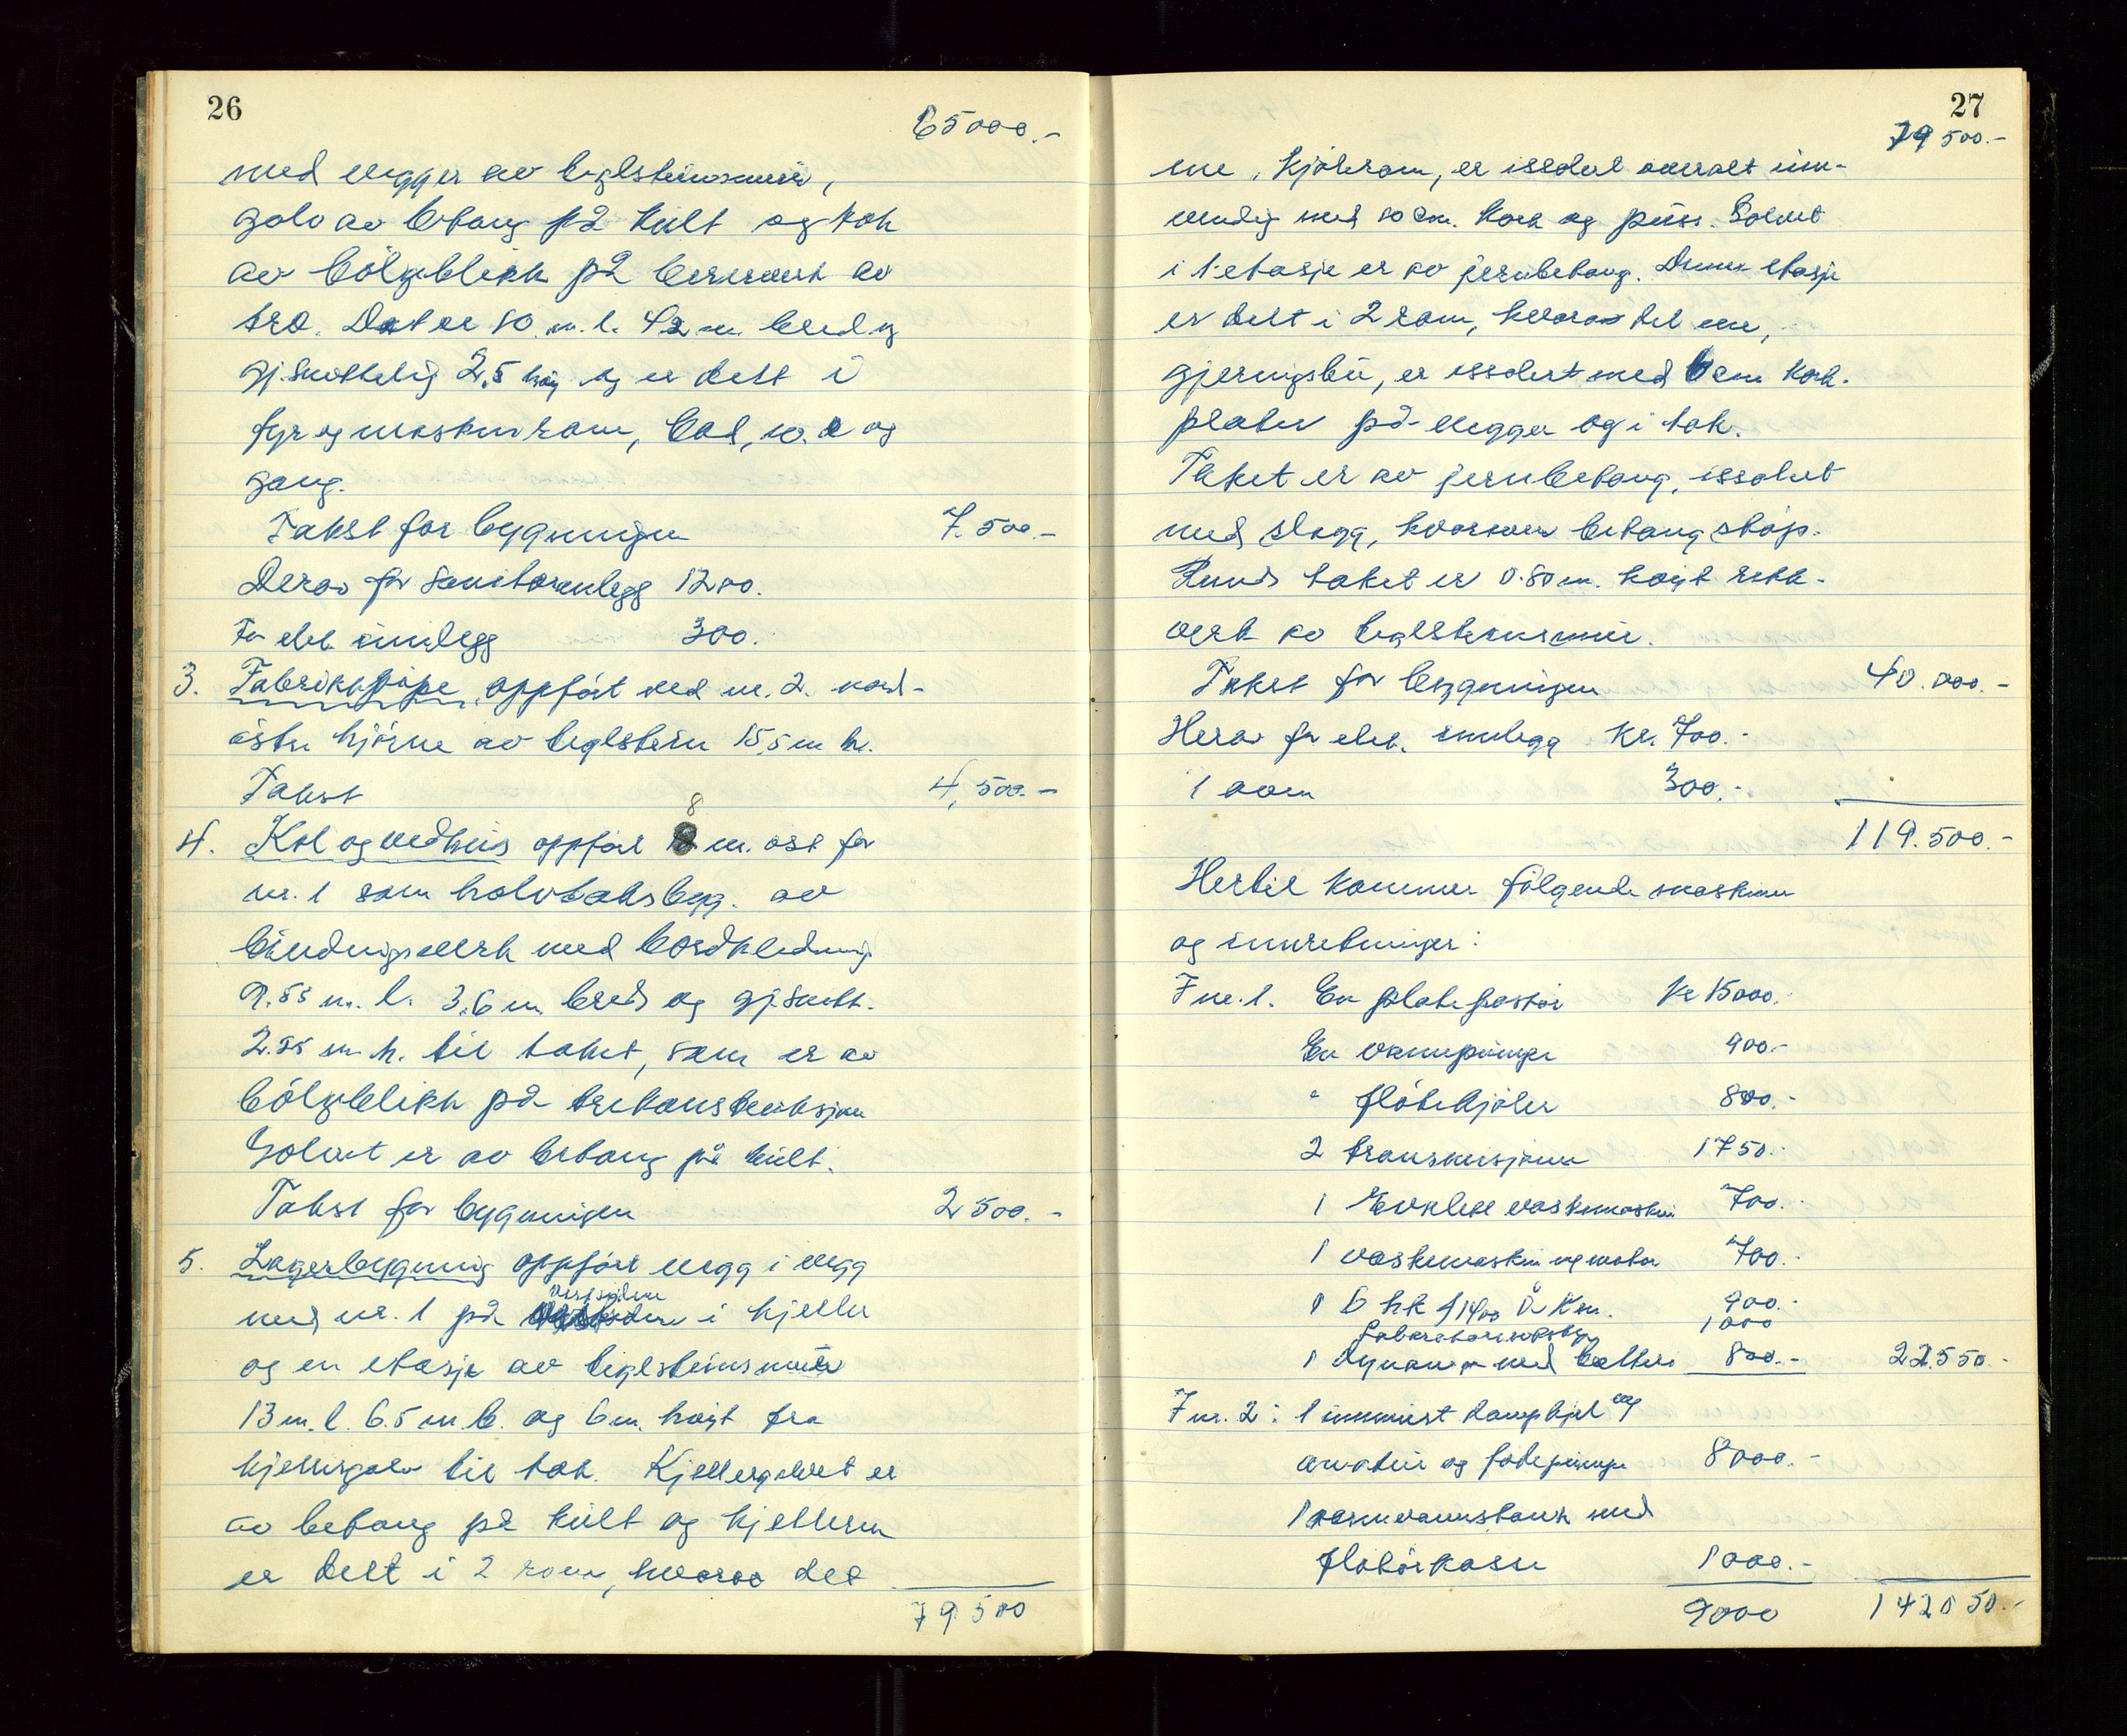 26
65000.-
med vegger av teglsteinsmur,
golv av betong på kult og tak
av bölgeblikk på bererverk av
tre. Det er 10 m. l. 4,2 m. bred og
gj.snittelig 2,5 höy og er delt i
fyr og maskinrom, bad, w.c og
gang.
Takst for bygningen 7.500.-
Derav for sanitæranlegg 1200.
For elek. innlegg 300.
3. Fabrikkpipe, oppfört ved nr. 2. nord-
östre hjörne av teglstein 15,5 m h.
Takst 4,500.-
8
4. Kol og vedhus oppfört 8 m. öst for
nr. 1 som halvtaksbygg. av
bindingsverk med bordkledning
9.55 m. l. 3.6 m. bred og gj.snitt.
2.55 m h. til taket, som er av
bölgeblikk på trekonstruksjon
Golvet er av betong på kult.
Takst for bygningen 2500.-
5. Lagerbygning oppfört vegg i vegg
vestsiden
med nr. 1 på i kjeller
og en etasje av teglsteinsmur
13 m. l. 6.5 m. b. og 6 m. höyt fra
kjellergolv til tak. Kjellergolvet er
av betong på kult og kjelleren
er delt i 2 rom, hvorav det
79500
27
79500.-
ene, kjölerom, er isolert overalt inn-
vendig med 10 cm. kork og puss. Golvet
i 1. etasje er av jernbetong. Denne etasje
er delt i 2 rom, hvorav det ene,
gjeringsbu, er issolert med 6 cm kork-
plater på vegger og i tak.
Taket er av jernbetong, issolert
med slagg, hvorover betong stöp.
Rundt taket er 0.80 m. höyt rekk-
verk av teglsteinsmur.
Takst for bygningen 40.000.-
Herav for elek. innlegg kr. 700.-
1 ovn 300.-
119.500.-
Hertil kommer fölgende maskiner
og innretninger:
I nr. 1. En platepastör Kr 15000.
En vannpumpe 900.-
" flötekjöler 800.-
2 transmisjoner 1750.-
1 vaskemaskin 700.-
1 vaskemaskin og motor 700.-
1 6 hk 900.-
1000
1 Dynamo med batteri 800.- 22.550.-
I nr. 2: 1 innmurt dampkjel og
armatur og födepumpe 8000.-
1 varmvannstank med
flotörkasse 1000.-
9000 142050.-